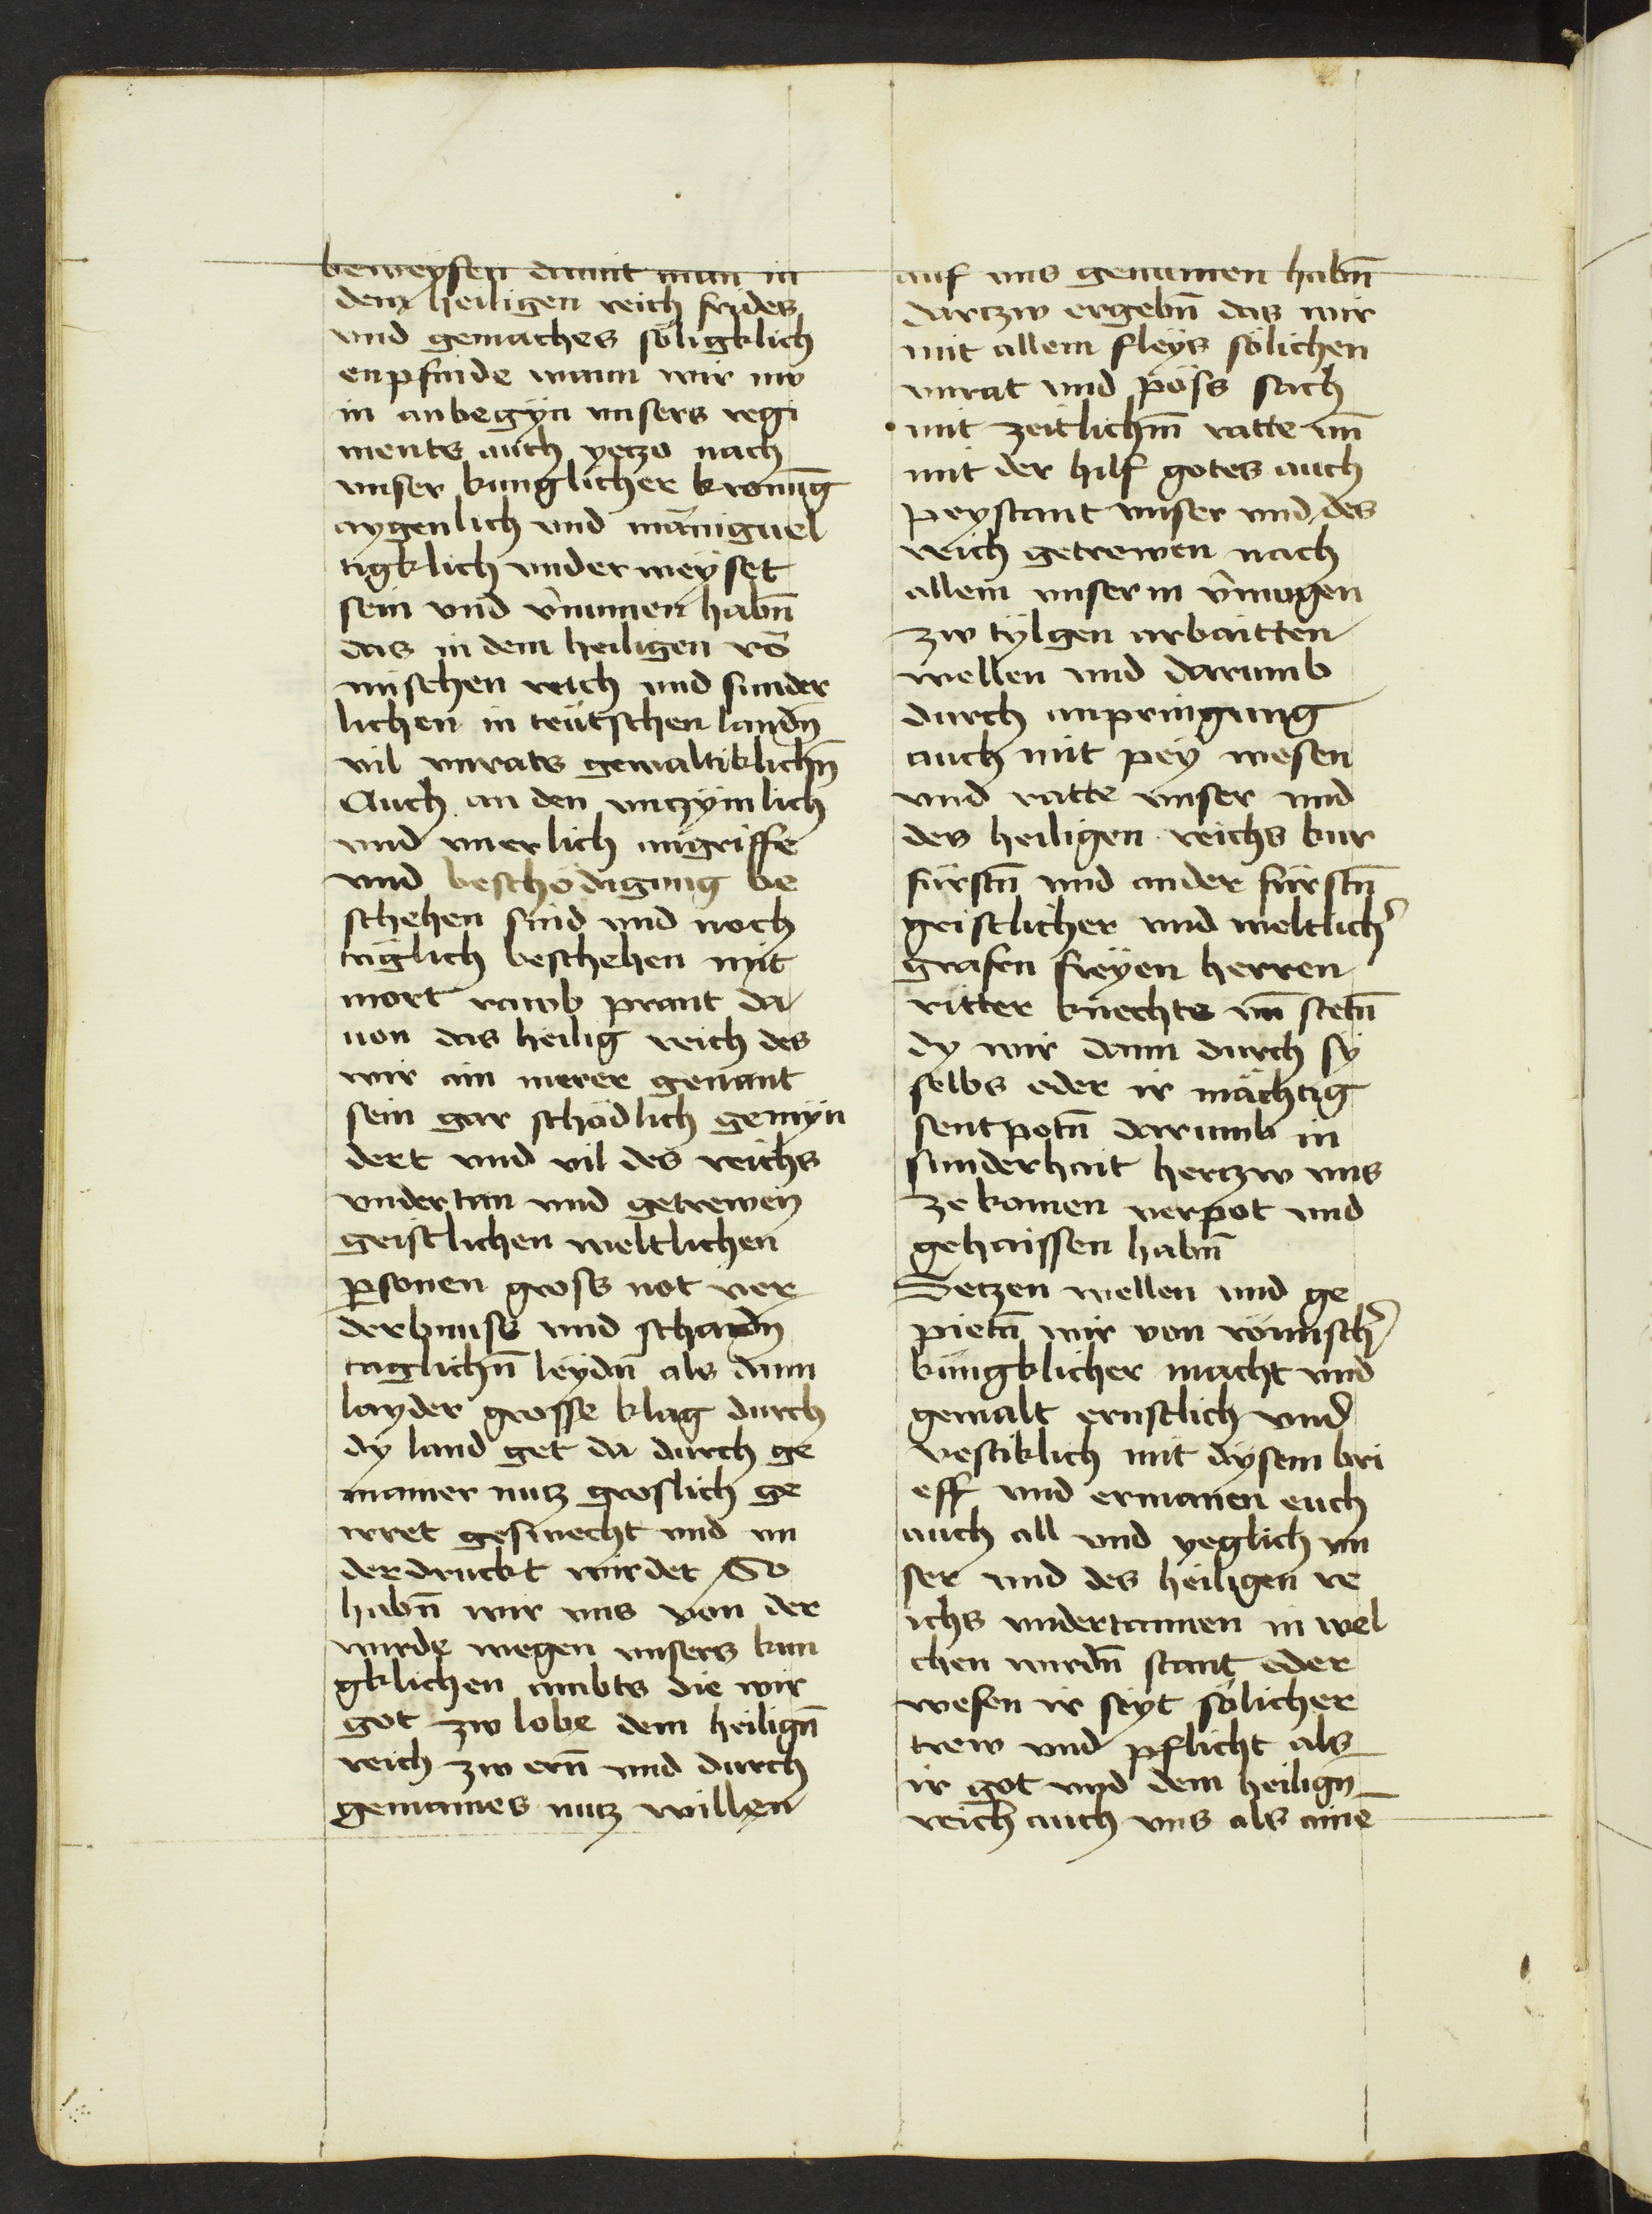 beweysen damit man in
dem heiligen reich frides
vnd gemaches söligklich
enpfinde wann wir nw
in anbegyn vnsers regi
ments auch yeczo nach
vnser kunglicher kronu̅g
aygenlich vnd mäniguel
tigklich vnderweyset
sein vnd v̉numen habn̅
das in dem heiligen rö
mischen reich vnd sunder
lichen in teütschen landn̅
vil vnrats gewaltiklichn̅
Auch an den vnczymlich
vnd vnerlich angriffe
vnd beschödigung be
schehen sind vnd noch
täglich beschehen mit
mort raub prant da
uon das heilig reich des
wir ain merer genant
sein gar schödlich gemyn
dert vnd vil des reichs
vndertan vnd getrewen
geistlichen weltlichen
p̲sonen gross not ver
derbnuss vnd schadn̅
taglichn̅ leydn̅ als dann
layder grosse klag durch
dy land get da durch ge
mainer nucz groslich ge
irret geswecht vnd vn
derdruckt wirdet So
habn̅ wir vns von der
wirde wegen vnsers kun
gklichen ambts die wir
got zw lobe dem heilign̅
reich zw ern̅ vnd durch
gemaines nucz willen
auf vns genumen habn̅
darczw ergebn̅ das wir
mit allem fleys sölichen
vnrat vnd pöss sach
mit zeitlichm̅ ratte vn̅
mit der hilf gotes auch
peystant vnser vnd des
reich getrewen nach
allem vnserm v̉mugen
zw tylgen arbaitten
wellen vnd darumb
durch anpringung
auch mit pey wesen
vnd ratte vnser vnd
des heiligen reichs kur
fürstn̅ vnd ander fürstn̅
geistlicher vnd weltlich̉
grafen freyen herren
ritter knechte vn̅ stetn̅
dy wir dann durch sy
selbs eder ir mächtig
sentpotn̅ darumb in
sunderhait herczw vns
ze komen verpot vnd
gehaissen habm̅
Seczen wellen vnd ge
pietn̅ wir von römisch̉
küngklicher macht vnd
gewalt ernstlich vnd
vestiklich mit dysem bri
eff vnd ermanen euch
auch all vnd yeglich vn
ser vnd des heiligen re
ichs vndertannen in wel
chen wirdn̅ stant eder
wesen ir seyt sölicher
trew vnd pflicht als
ir got vnd dem heilign̅
reich auch vns als aine̅